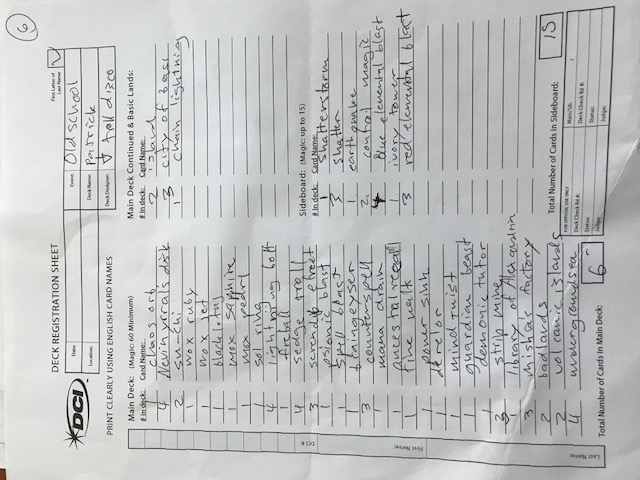 6
DECK REGISTRATION SHEET
First Letter of Last Name:
DCI
Date:
Event: Oldschool
Location:
Deck Name: Patrick
Deck Designer: troll disco
PRINT CLEARLY USING ENGLISH CARD NAMES
Main Deck: (Magic: 60 Minimum)
# in deck: Card Name:
1 chaos orb
4 Nevinyrrals disk
2 su-chi
1 mox ruby
1 mox jet
1 black lotus
1 mox sapphire
1 mox pearl
1 sol ring
4 lightning bolt
1 fireball
4 sedge troll
3 serendip efreet
1 psionic blast
1 spell blast
1 braingeyser
3 counterspell
1 mana drain
1 ancestral recall
1 time walk
1 power sink
1 derelor
1 mind twist
1 guardian beast
1 demonic tutor
3 strip mine
1 library of Alexandria
3 mishra's factory
2 badlands
2 volcanic islands
4 underground sea
Total Number of Cards in Main Deck: 6
Main Deck Continued & Basic Lands:
# in deck: Card Name:
2 island
3 city of brass
1 chain lightning
Sideboard: (Magic: up to 15)
# in deck: Card Name:
1 shatterstorm
3 shatter
1 earthquake
2 control magic
4 Blue elemental blast
1 ivory tower
3 red elemental blast
Total Number of Cards in Sideboard: 15
FOR OFFICIAL USE ONLY
Deck Check Rd #:
Status:
Judge:
Main/SB:
Deck Check Rd #:
Status:
Judge:
DCI #:
First Name:
Last Name: